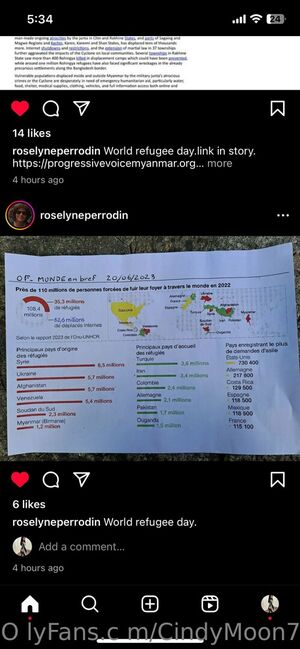 5:34
24
man-made ongoing atrocities by the junta in Chin and Rakhine States, and parts of Sagaing and
Magwe Regions and Kachin, Karen, Karenni and Shan States, has displaced tens of thousands
more. Internet shutdowns and restrictions, and the extension of martial law in 37 townships
further aggravated the impacts of the Cyclone on local communities. Several townships in Rakhine
State saw more than 400 Rohingya killed in displacement camps which could have been prevented,
while around one million Rohingya refugees have also faced significant wreckages in the already
precarious settlements along the Bangladesh border.
Vulnerable populations displaced inside and outside Myanmar by the military junta's atrocious
crimes or the Cyclone are desperately in need of emergency humanitarian aid, particularly water,
food, shelter, medical supplies, clothing, vehicles, and full information access both online and
14 likes
roselyneperrodin World refugee day.link in story.
https://progressivevoicemyanmar.org... more
4 hours ago
roselyneperrodin
OP- MUNDE en bref 20/06/2023
Près de 110 millions de personnes forcées de fuir leur foyer à travers le monde en 2022
108,4
millions
35,3 millions
de réfugiés
62,5 millions
de déplacés internes
Selon le rapport 2023 de l'Onu-UNHCR.
Allemagne
France
Espagne
Ukraine
Turquie
Afghanistan
Myanmar
Ouganda
Mexique
Costa Rica
Venezuela
Colombie
Principaux pays d'origine
des réfugiés
Syrie
6,5 millions
Ukraine
5,7 millions
Afghanistan
5,7 millions
Venezuela
5,4 millions
Soudan du Sud
2,3 millions
Myanmar (Birmanie)
1,2 million
Principaux pays d'accueil
des réfugiés
Turquie
3,6 millions
Iran
3,4 millions
Colombie
2,4 millions
Allemagne
2,1 millions
Pakistan
1,7 million
Ouganda
1,5 million
Pays enregistrant le plus
de demandes d'asile
États-Unis
730 400
Allemagne
217 800
Costa Rica
129 500
Espagne
118 500
Mexique
118 500
France
115 100
6 likes
roselyneperrodin World refugee day.
Add a comment...
4 hours ago
O lyFans.c m/CindyMoon7